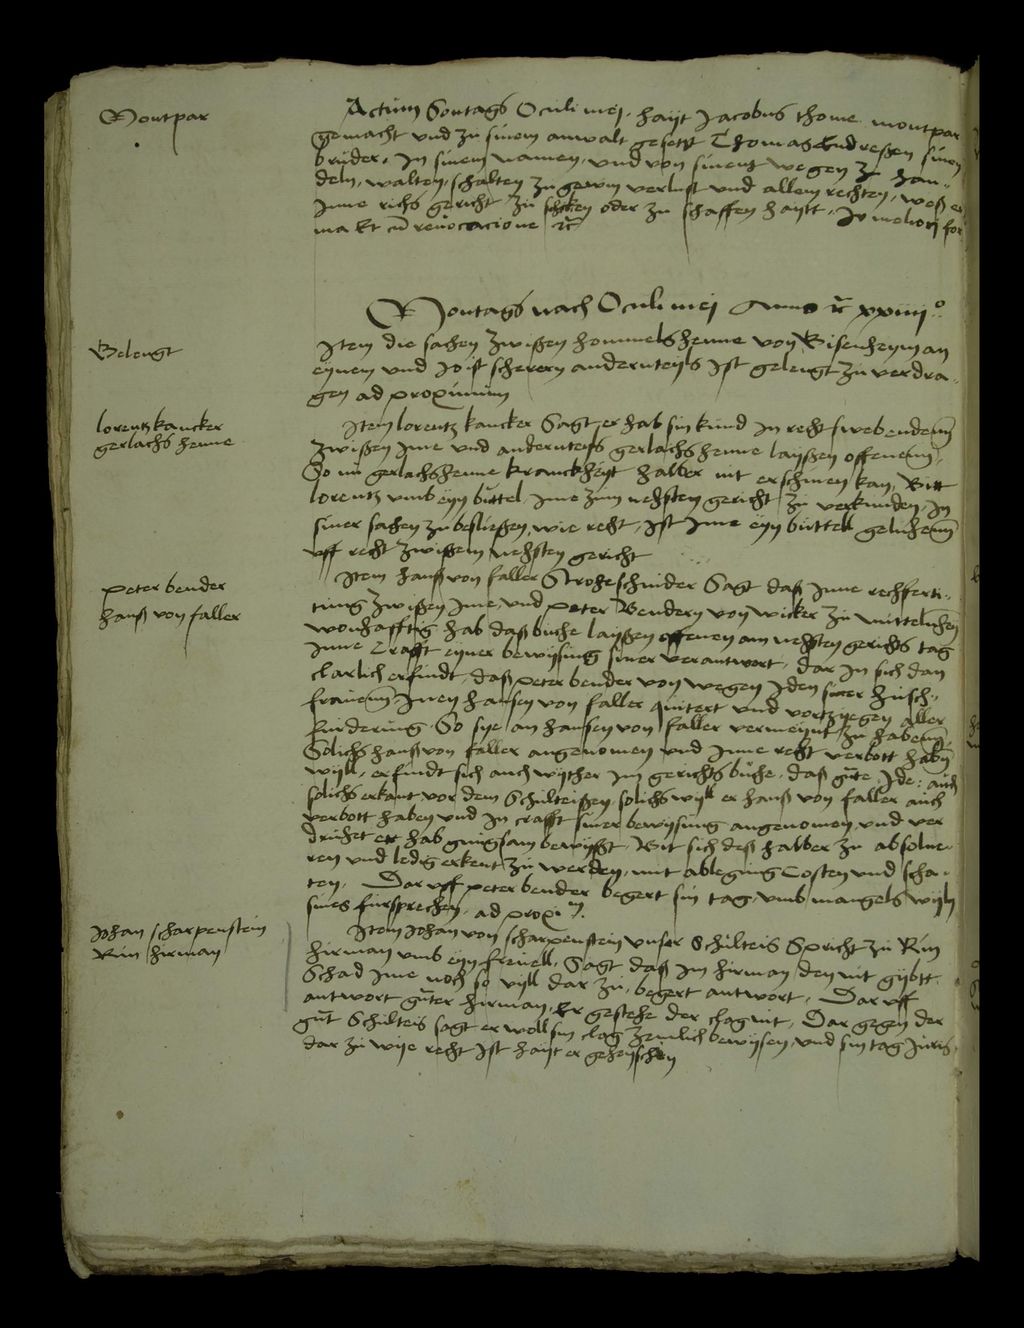 Montpar
Actum Sontags Oculi mej hayt Jacobus thome montpar
gemacht und zu sinem anwalt gesetzt Thomas Endressen sinen
bruder. In sinem namen, und von sinent wegen zu han„
deln, walten, schalten zu gewin verlust und allem rechten, weß er
Inne richs gericht zu schicken oder zu schaffen haytt, In meliorj for
ma kt cum revocacione etc
Montags nach Oculi mej Anno etc xxiiijo
Belengt
Item die sachen zwißen hommelshenne von Bisenheym an
eynem und Jost scherern andernteyls Ist gelengt zu verdra„
gen ad proximum
lorentz kancker
gerlachs henne
Item lorentz kancker Sagt, er hab sin kund In recht swebendenn
zwißen Jme und andernteyls gerlachshenne layßen offenenn,
So nu gerlachshenne kranckheyt halber nit erschinen kan, Bitt
lorentz umb eyn buttel Jme zum nehsten gericht zu verkunden, In
siner sachen zu besließen, wie recht, Ist Jme eyn buttell geluhenn
uff recht zwißem nehsten gericht
peter bender
hanß von faller
Item hanß von faller Stroheschnider Sagt daß Jnne rechferti„
tung zwißen Jme, und peter Bendern von wicker zu mittelnhen
wonhafftig hab daß buche layßen offenen am nehsten gerichts tag
Jnne Crafft eyner bewysung siner verantwort, dar In sich dan
clarlich erfindt, daß peter bender von wegen Jden siner husch„
frauenn Jnen hansen von faller quitert und vortzyegen aller
furderung. So sye an hansen von faller vermeynt zu habenn,
Solichs hanß von faller angenomen und Jnne recht verbott habn
wyll, erfindt sich auch wyther Im gerichts buche, daß gute Jde: auch
solichs erkant vor dem Schulteißen, solichs wyll er hanß von faller auch
verbott haben und In crafft siner bewysung angenomen, und ver
druhet er hab gnugsam bewyßt, Bit sich deß halber zu absolue„
ren und ledig erkent zu werden, mit ablegung Costen und scha„
ten, Dar uff peter bender begert sin tag, umb mangels wyln
sines fursprechen, ad proxim.
Johan scharpenstein
Run hirman
Item Johan von scharpenstein unser Schulteis Spricht zu Run
hirman umb eyn frevell, Sagt daß Im hirman den nit gybtt
Schad Jme noch so vyll dar zu, begert antwort, Dar uff
antwort guter hirman, Er gestehe der clag nit, Dar gegen der
gut Schulteis sagt er woll sin clag zemlich bewysen, und sin tag Juris,
dar zu wye recht Ist hayt er geheyschen